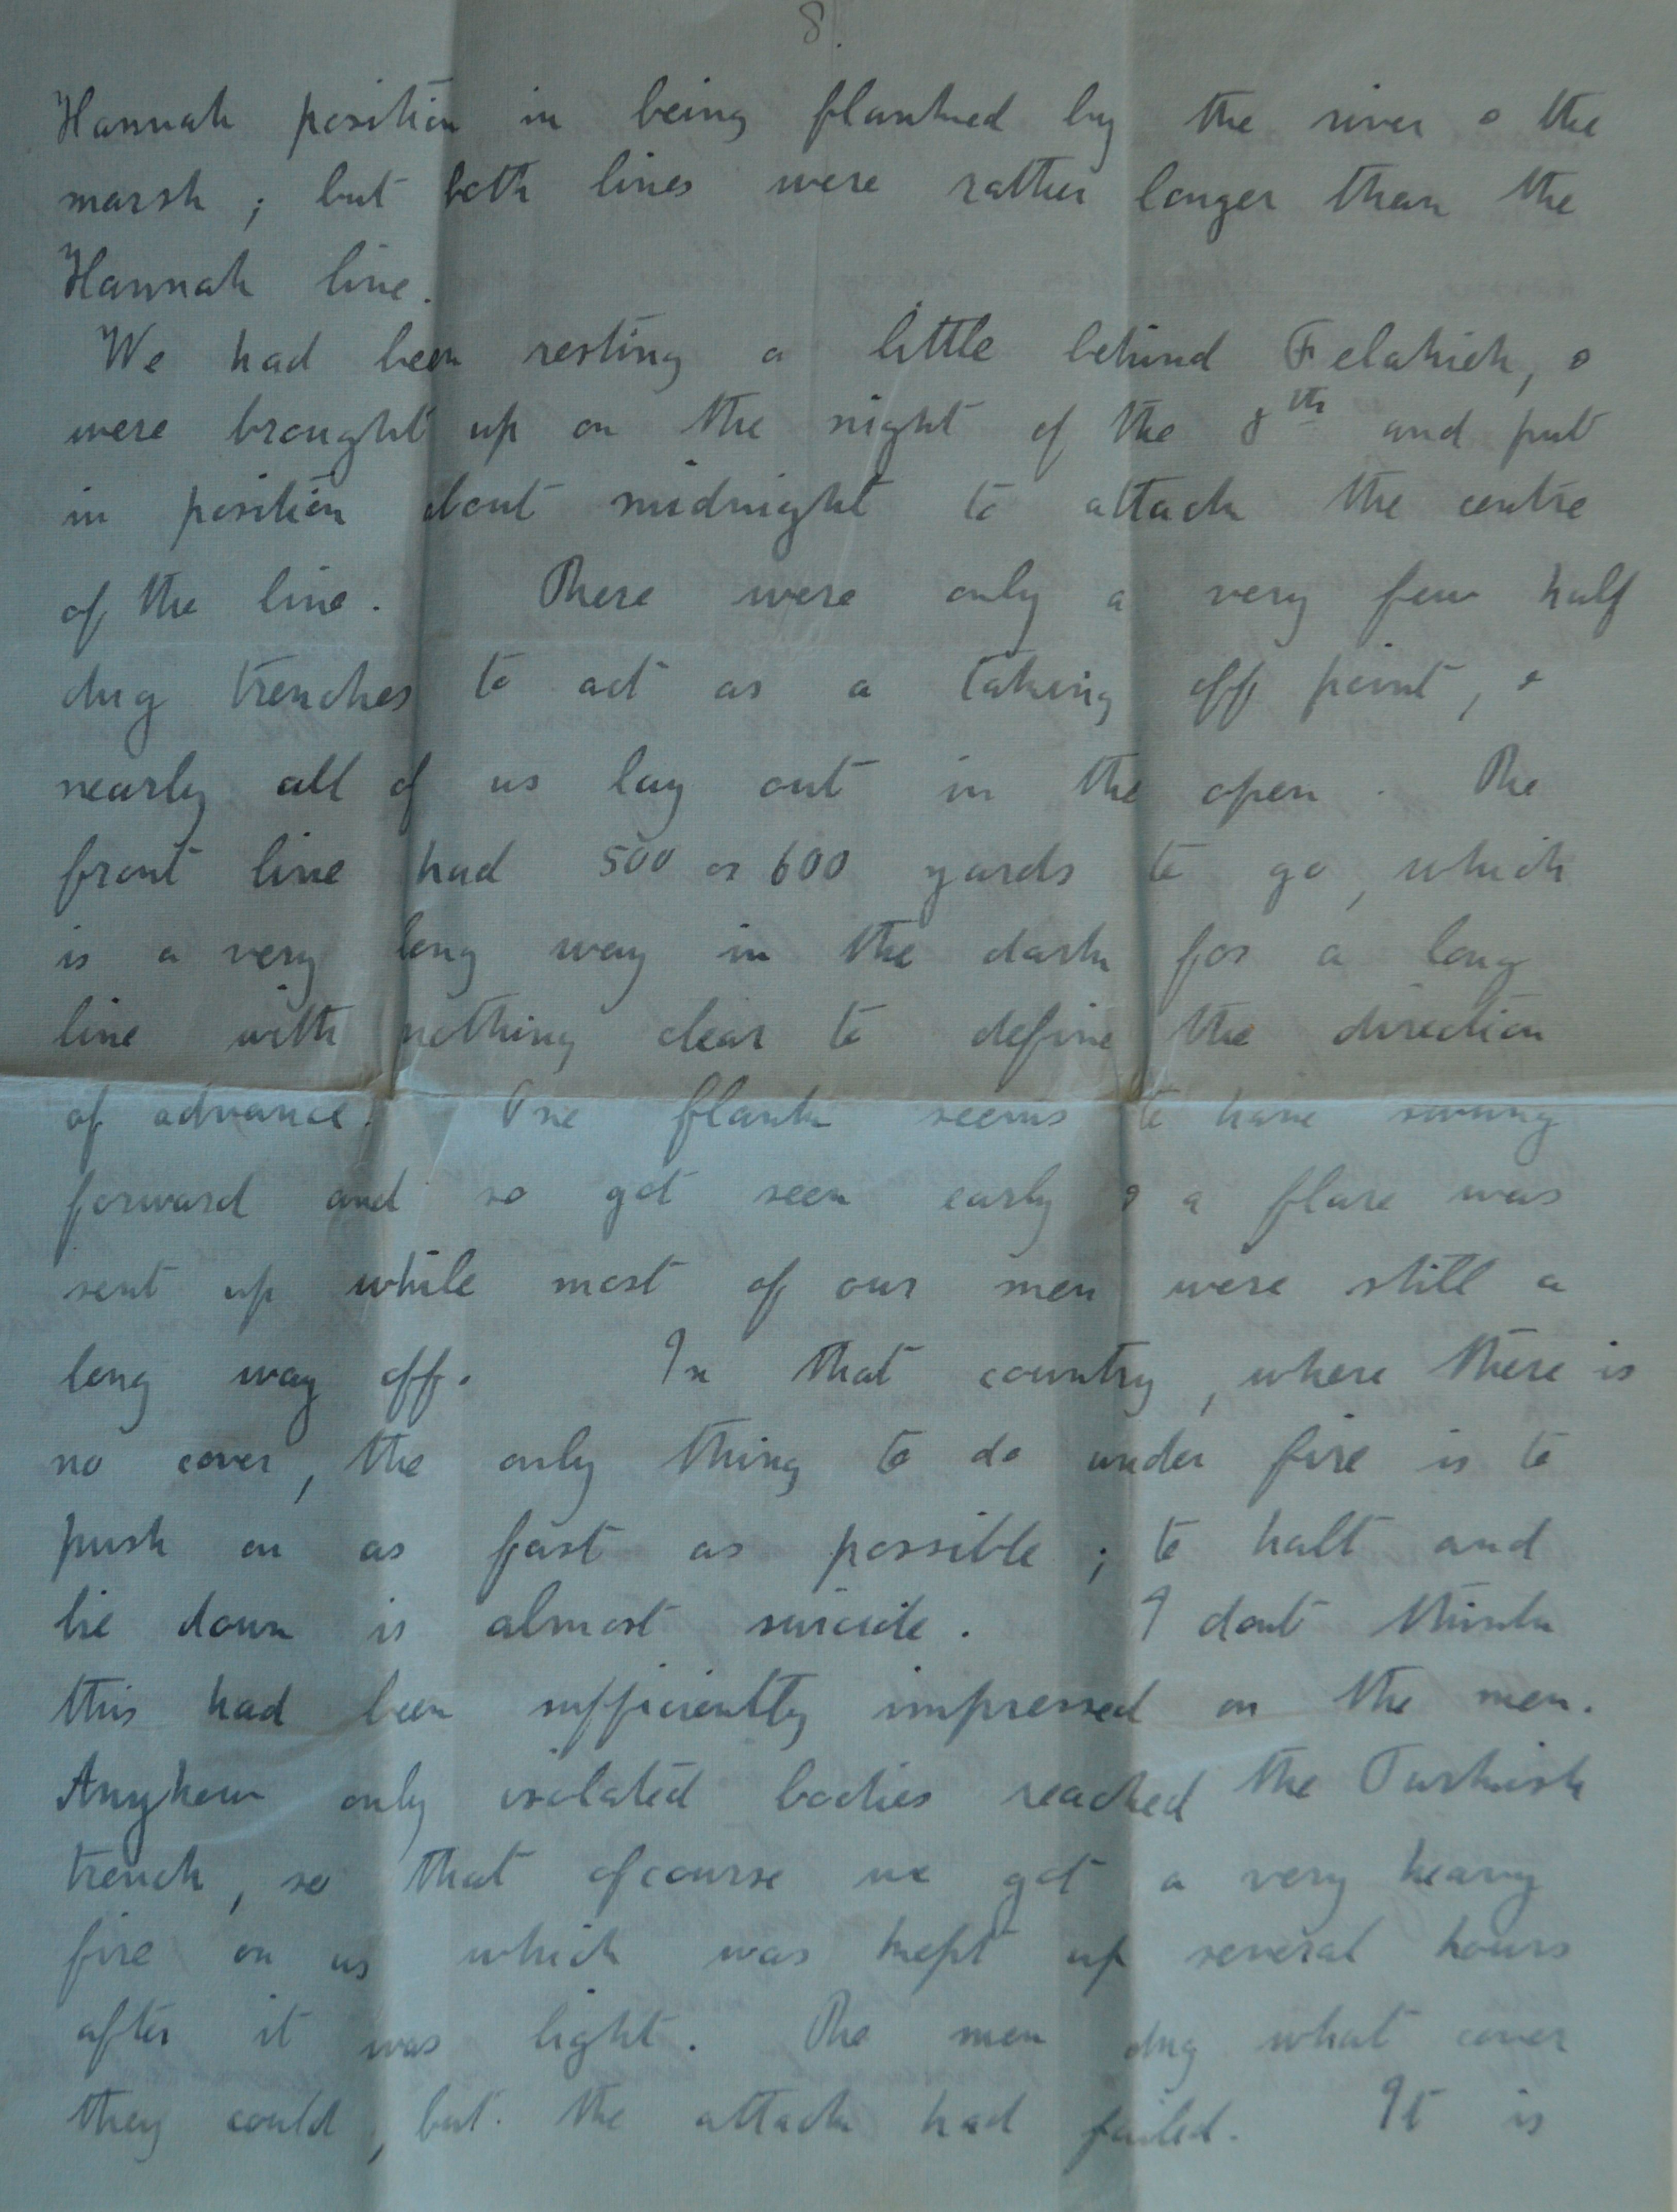 8.
Hannah position in being flanked by the river & the
marsh ; but both lines were rather longer than the
Hannah line.
We had been resting a little behind Felahieh, &
were brought up on the night of the 8th and put
in position about midnight to attack the centre
of the line. There were only a very few half
dug trenches to act as a taking off point, &
nearly all of us lay out in the open. The
front line had 500 or 600 yards to go, which
is a very long way in the dark for a long
line with nothing clear to define the direction
of advance. One flank seems to have swung
forward and so got seen early & a flare was
sent up while most of our men were still a
long way off. In that country, where there is
no cover, the only thing to do under fire is to
push on as fast as possible ; to halt and
lie down is almost suicide. I dont think
this had been sufficiently impressed on the men.
Anyhow only isolated bodies reached the Turkish
trench, so that ofcourse we got a very heavy
fire on us which was kept up several hours
after it was light. The men dug what cover
they could, but the attack had failed. It is